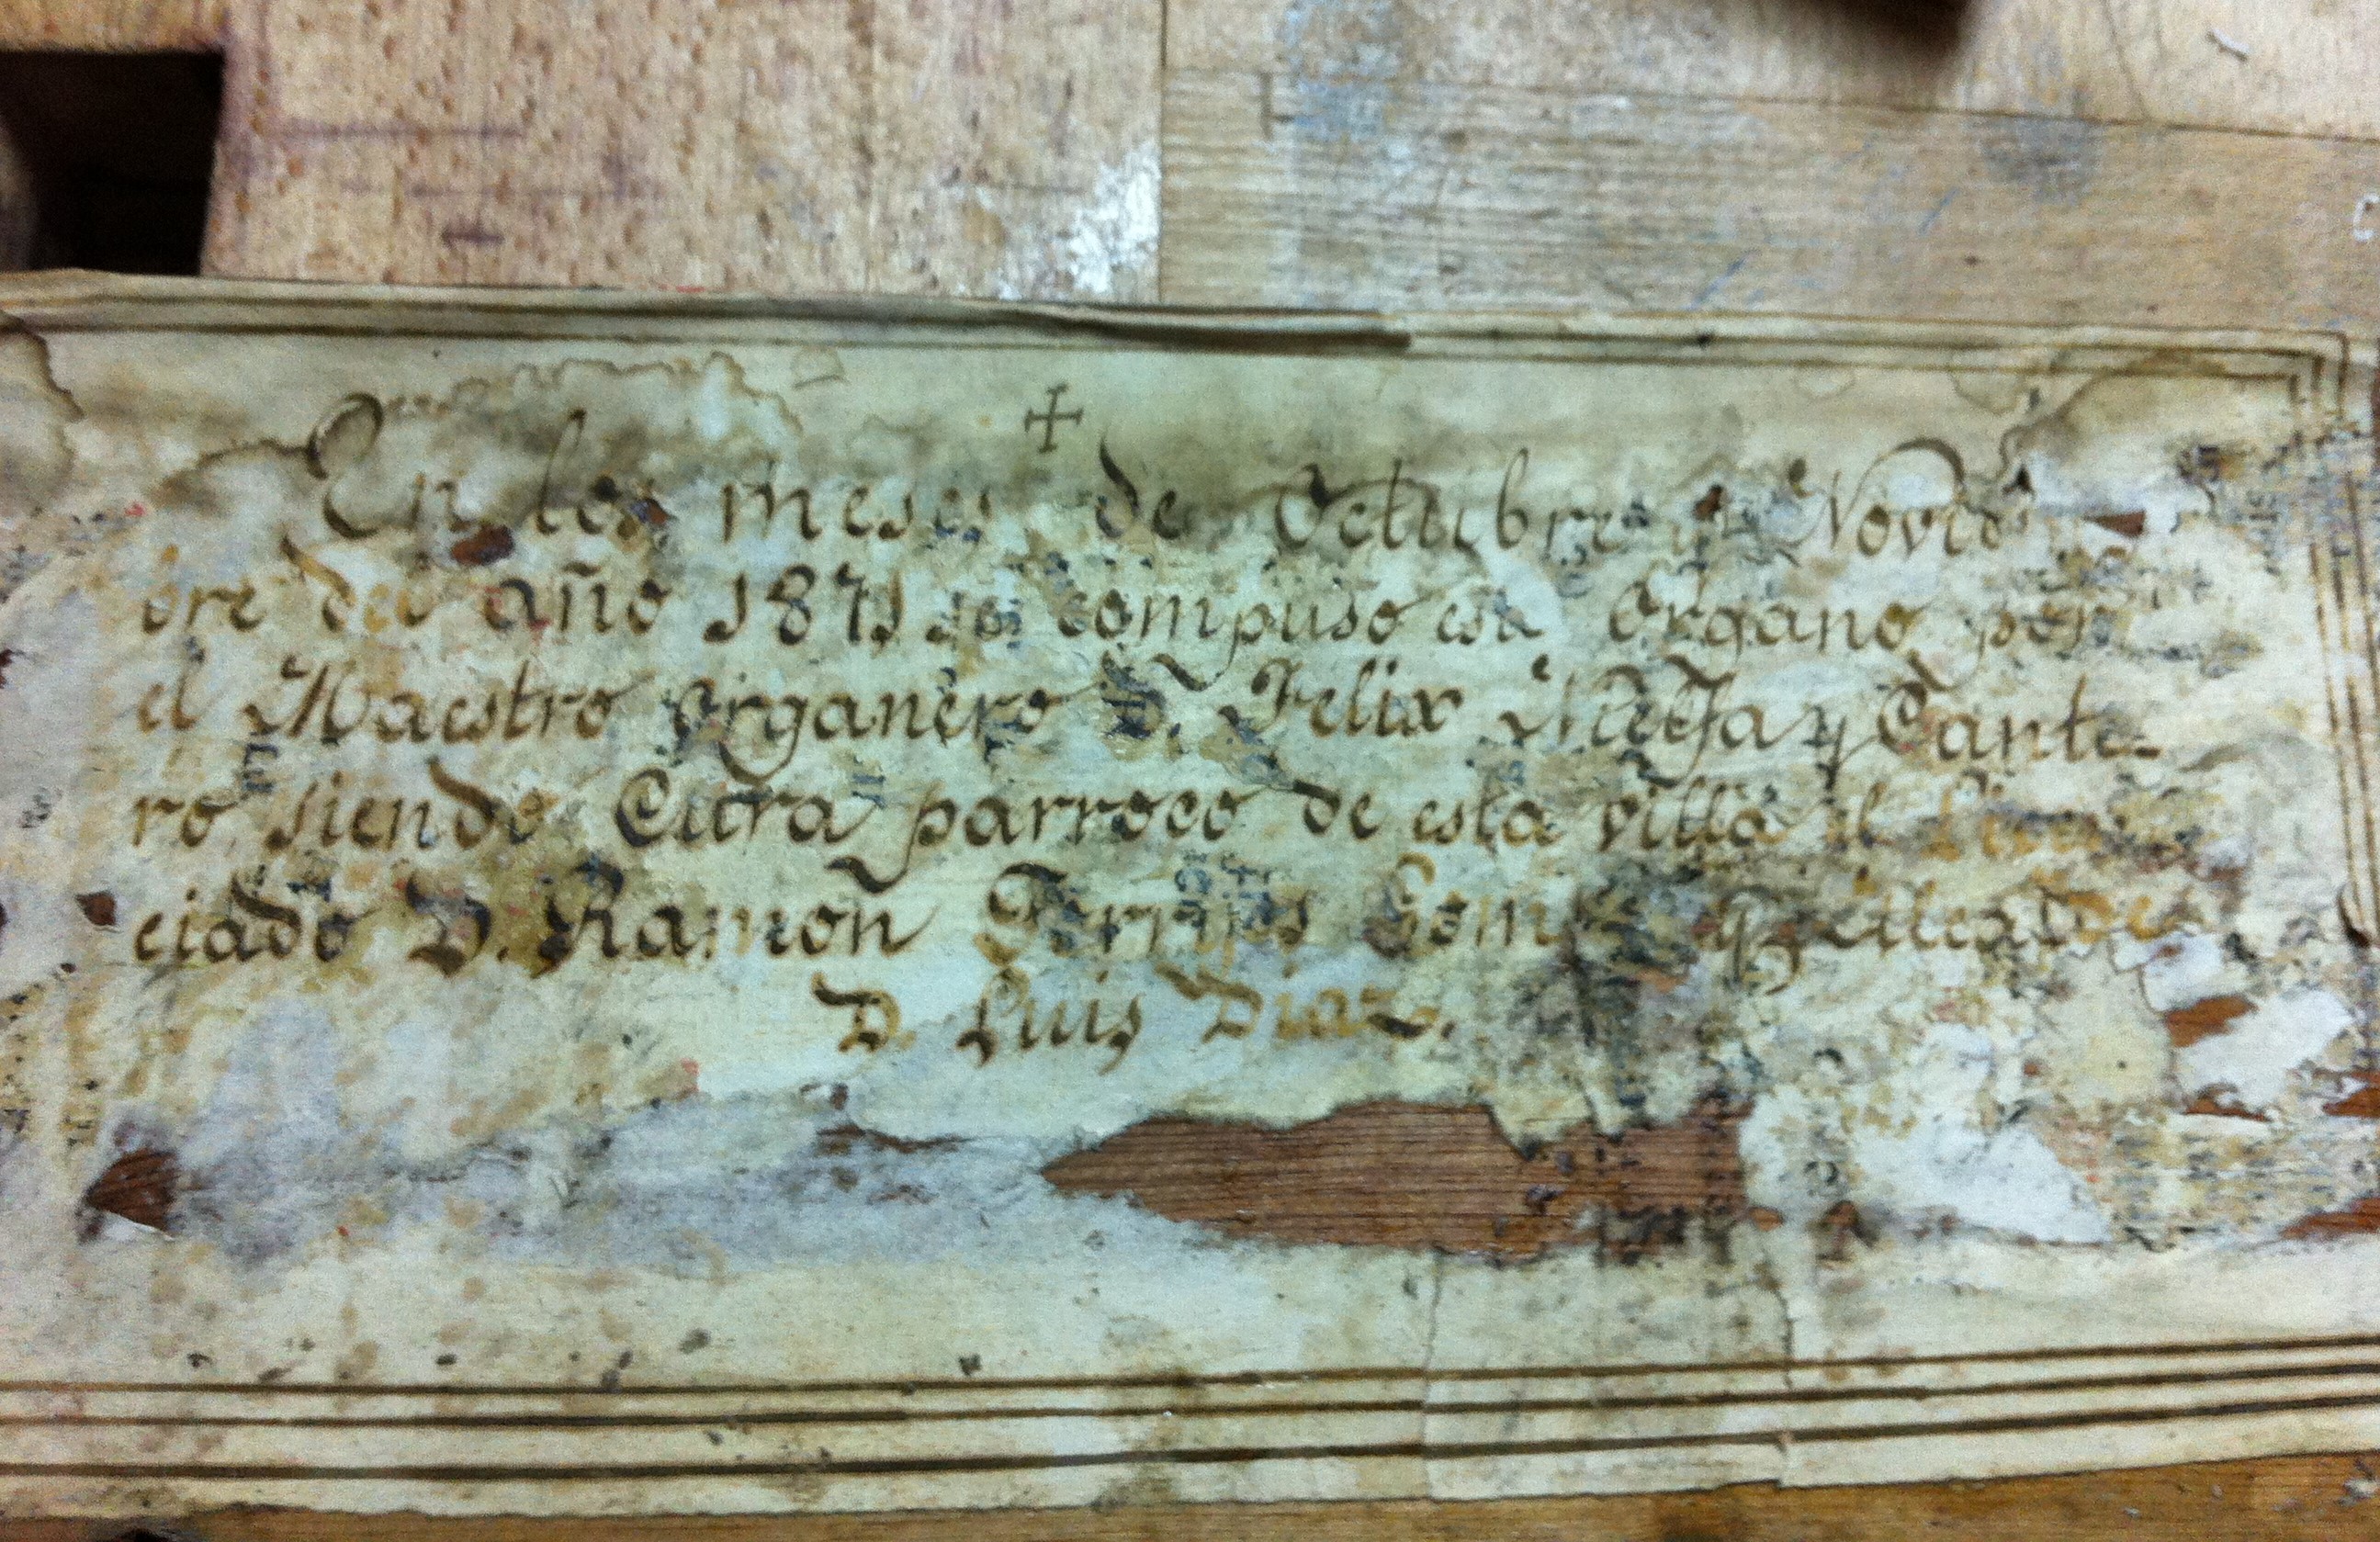 +
En los meses de Octubre y Novie
bre del año 1871 se compuso este Organo por
el Maestro Organero D. Felix y Cante-
ro siendo Cura parroco de esta villa el Licen
ciado D. Ramon Alcalde
D. Luis Diaz.